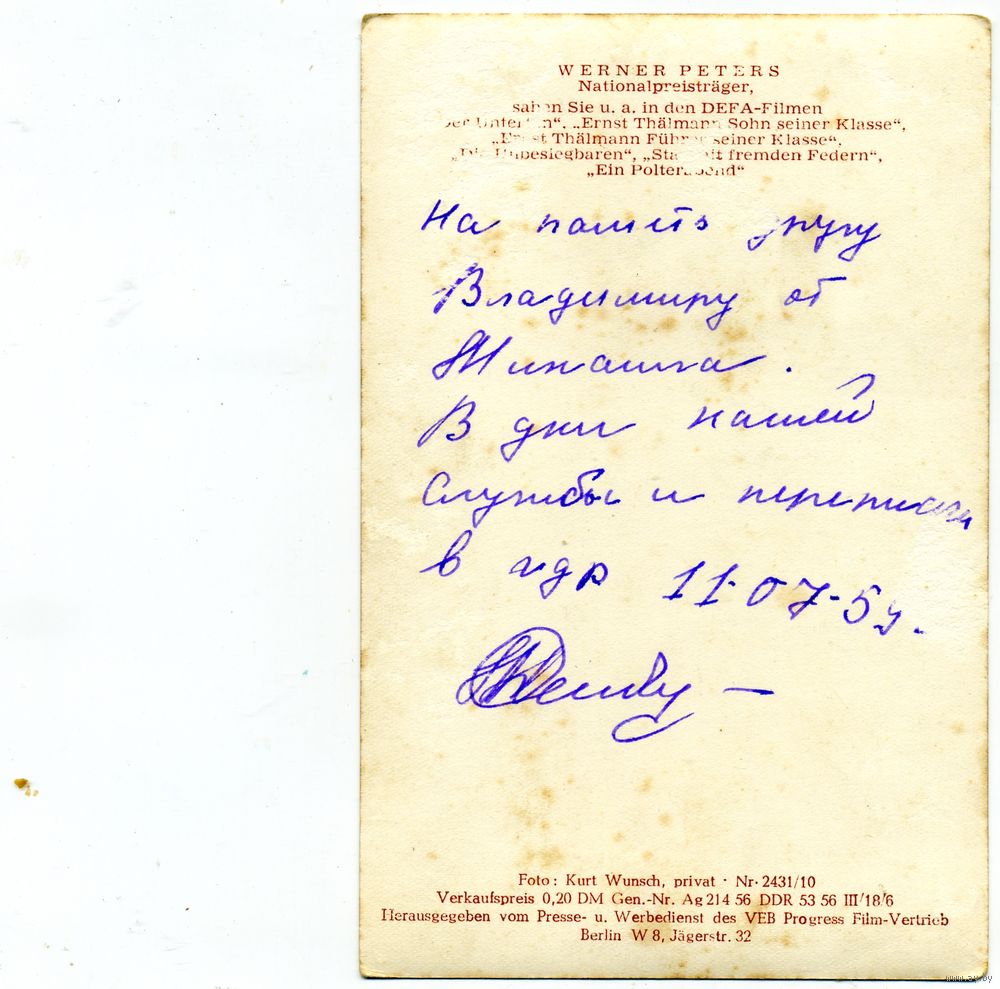 WERNER PETERS
Nationalpreisträger,
sahen Sie u. a. in den DEFA-Filmen
„Der Untertan“, „Ernst Thälmann Sohn seiner Klasse“,
„Ernst Thälmann Führer seiner Klasse“,
„Die Unbesiegbaren“, „Star mit fremden Federn“,
„Ein Polterabend“
На память другу
Владимиру от
В дни нашей
службы и
в гдр 11-07-59.
Foto: Kurt Wunsch, privat · Nr. 2431/10
Verkaufspreis 0,20 DM Gen.-Nr. Ag 214 56 DDR 53 56 III/18/6
Herausgegeben vom Presse- u. Werbedienst des VEB Progress Film-Vertrieb
Berlin W 8, Jägerstr. 32